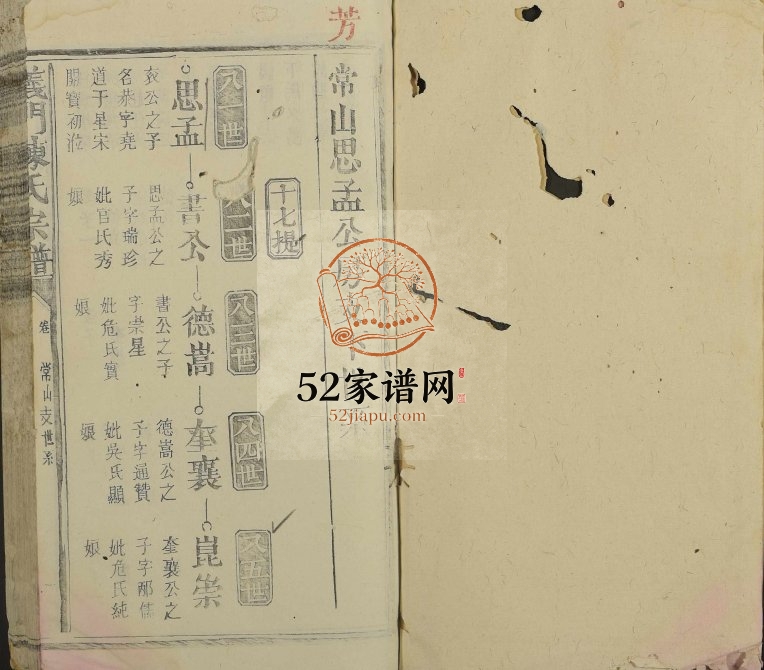 芳
常山思孟公
十七提
八一世
思孟
袞公之子
名恭字堯
道于星宋
開寶初涖
八二世
書公
思孟公之
子字瑞珍
妣官氏秀
娘
八三世
德嵩
書公之子
字崇星
妣危氏實
娘
八四世
奎襄
德嵩公之
子字通贊
妣吳氏顯
娘
八五世
崑崇
奎襄公之
子字邴儒
妣危氏純
娘
義門陳氏宗譜
卷
常山支世系
52家谱网
52jiapu.com